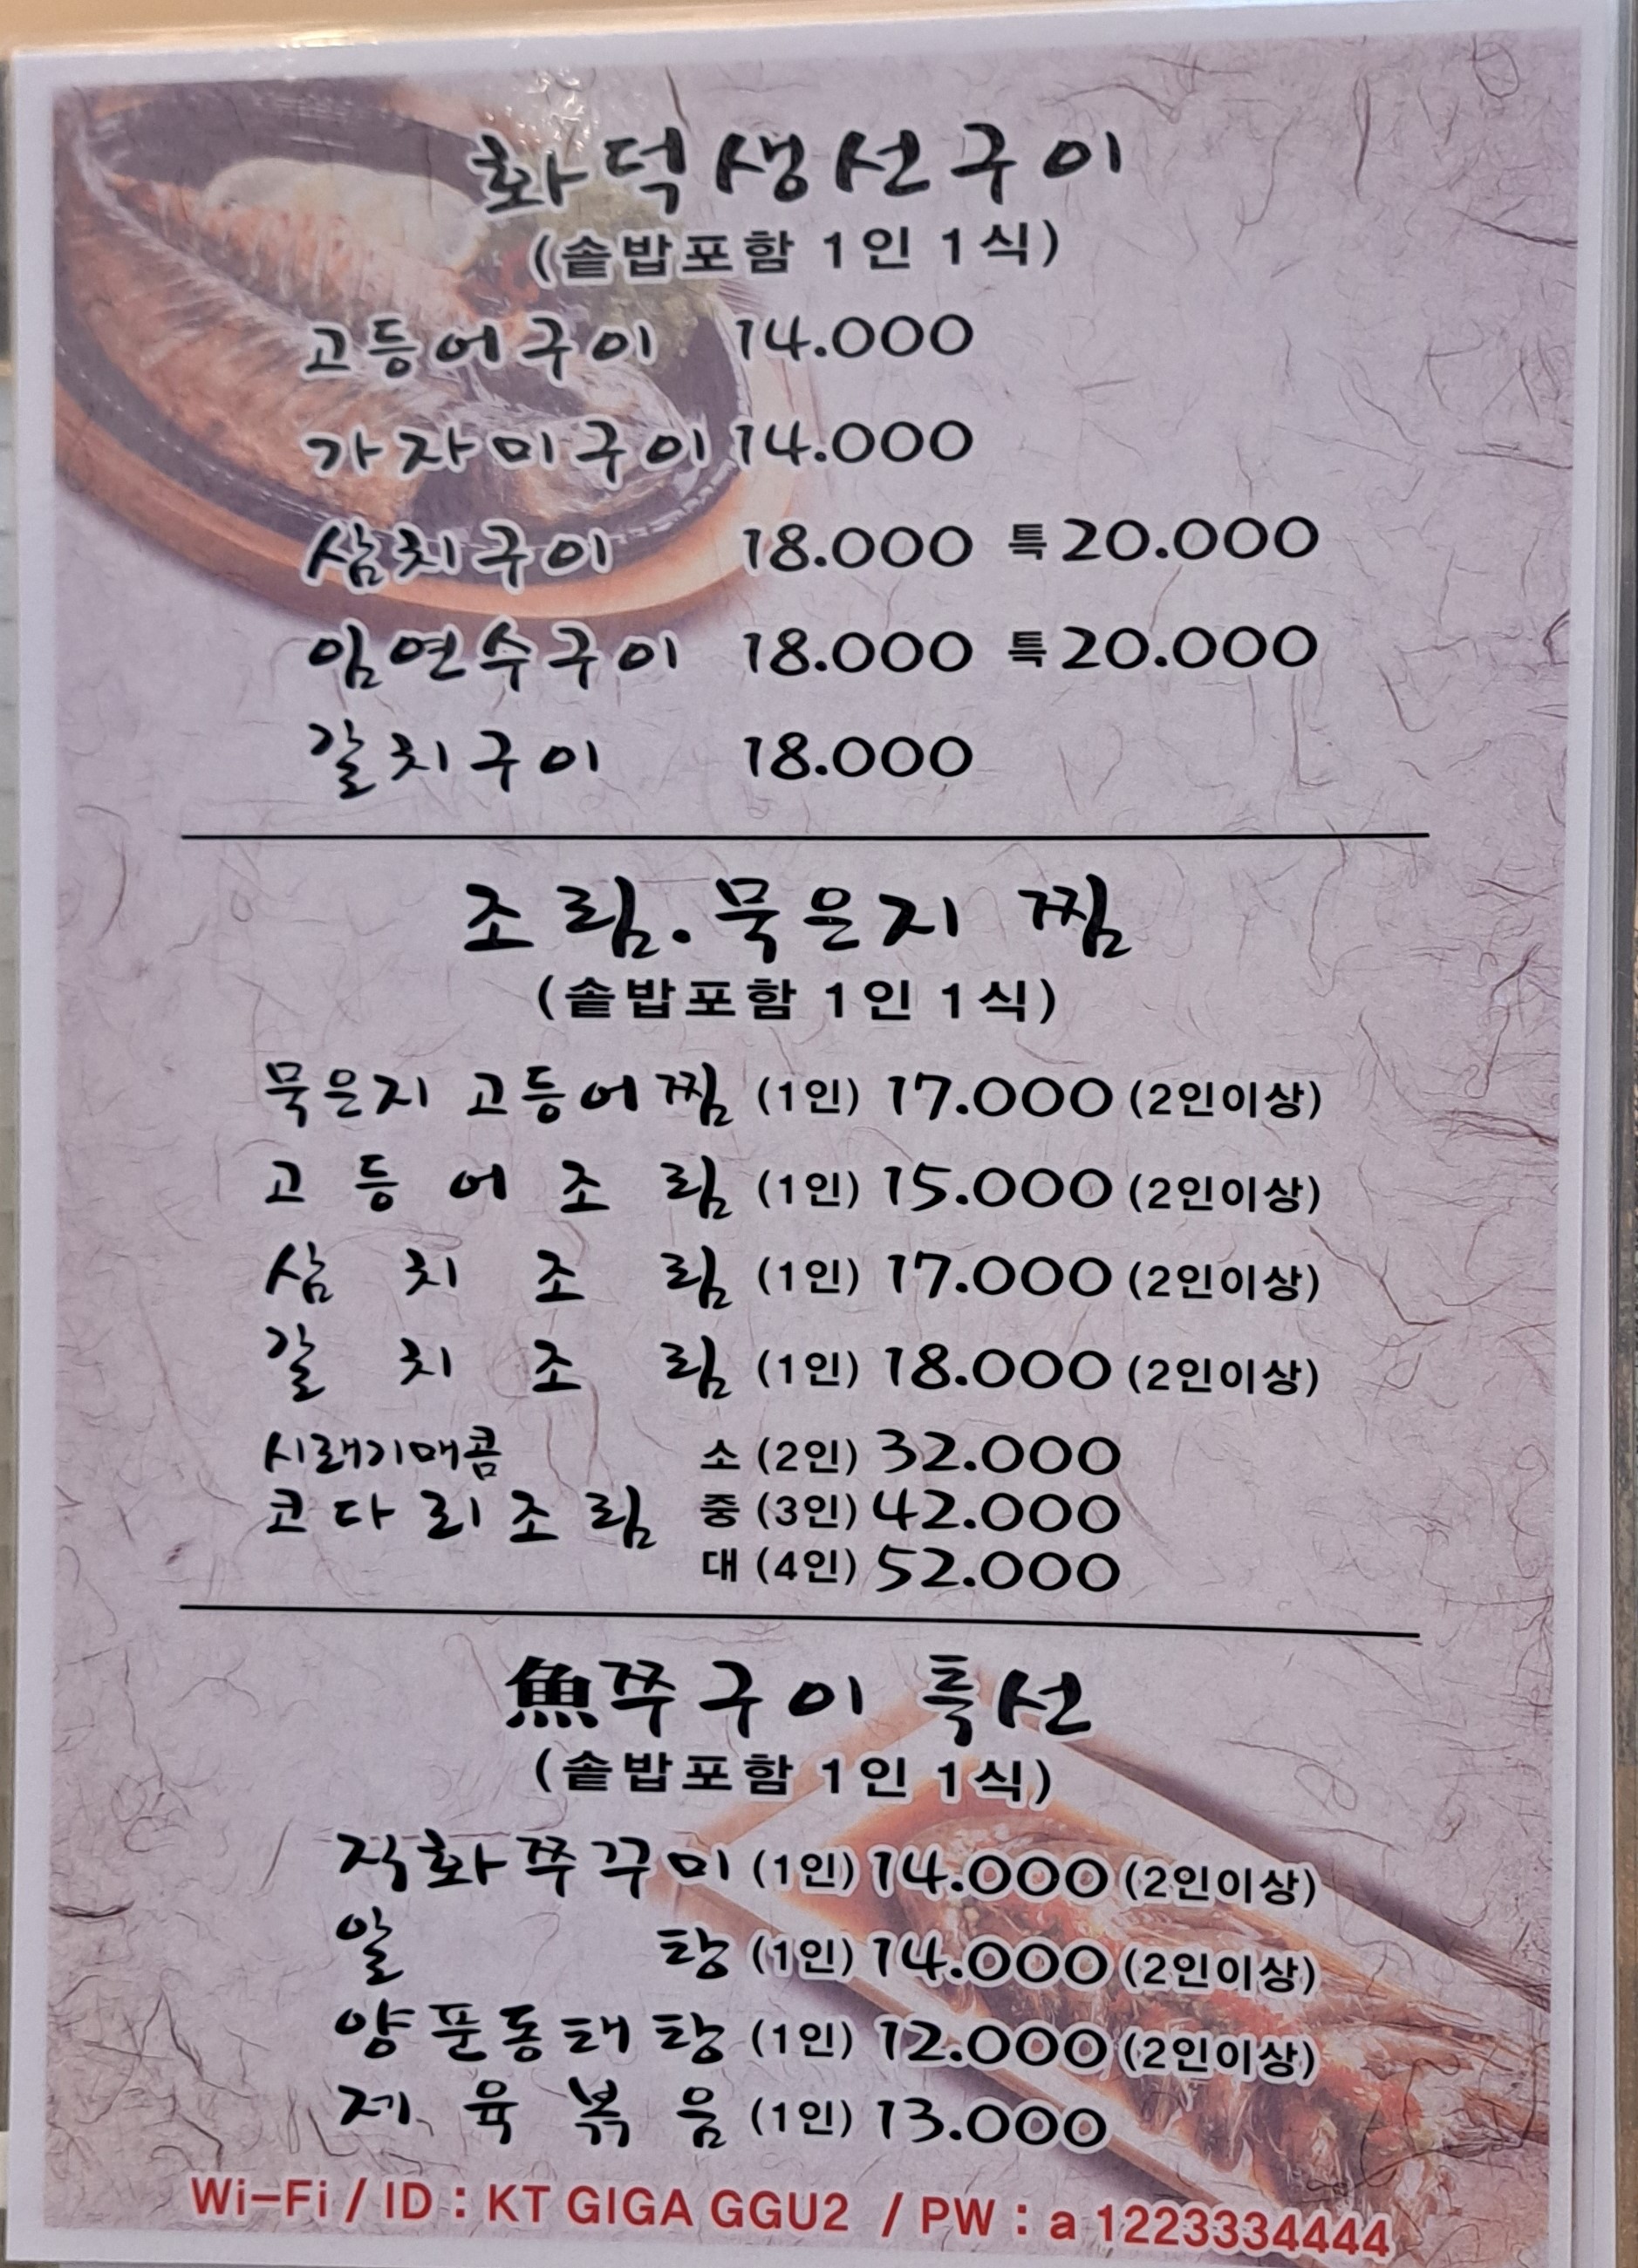 화덕생선구이
(솥밥포함 1인 1식)
고등어구이 14.000
가자미구이 14.000
삼치구이 18.000 특 20.000
임연수구이 18.000 특 20.000
갈치구이 18.000
조림.묵은지 찜
(솥밥포함 1인 1식)
묵은지 고등어찜 (1인) 17.000 (2인이상)
고등어조림 (1인) 15.000 (2인이상)
삼치조림 (1인) 17.000 (2인이상)
갈치조림 (1인) 18.000 (2인이상)
시래기매콤 소 (2인) 32.000
코다리조림 중 (3인) 42.000
대 (4인) 52.000
魚쭈구이 특선
(솥밥포함 1인 1식)
직화쭈꾸미 (1인) 14.000 (2인이상)
알탕 (1인) 14.000 (2인이상)
양푼동태탕 (1인) 12.000 (2인이상)
제육볶음 (1인) 13.000
Wi-Fi / ID : KT GIGA GGU2 / PW : a 1223334444